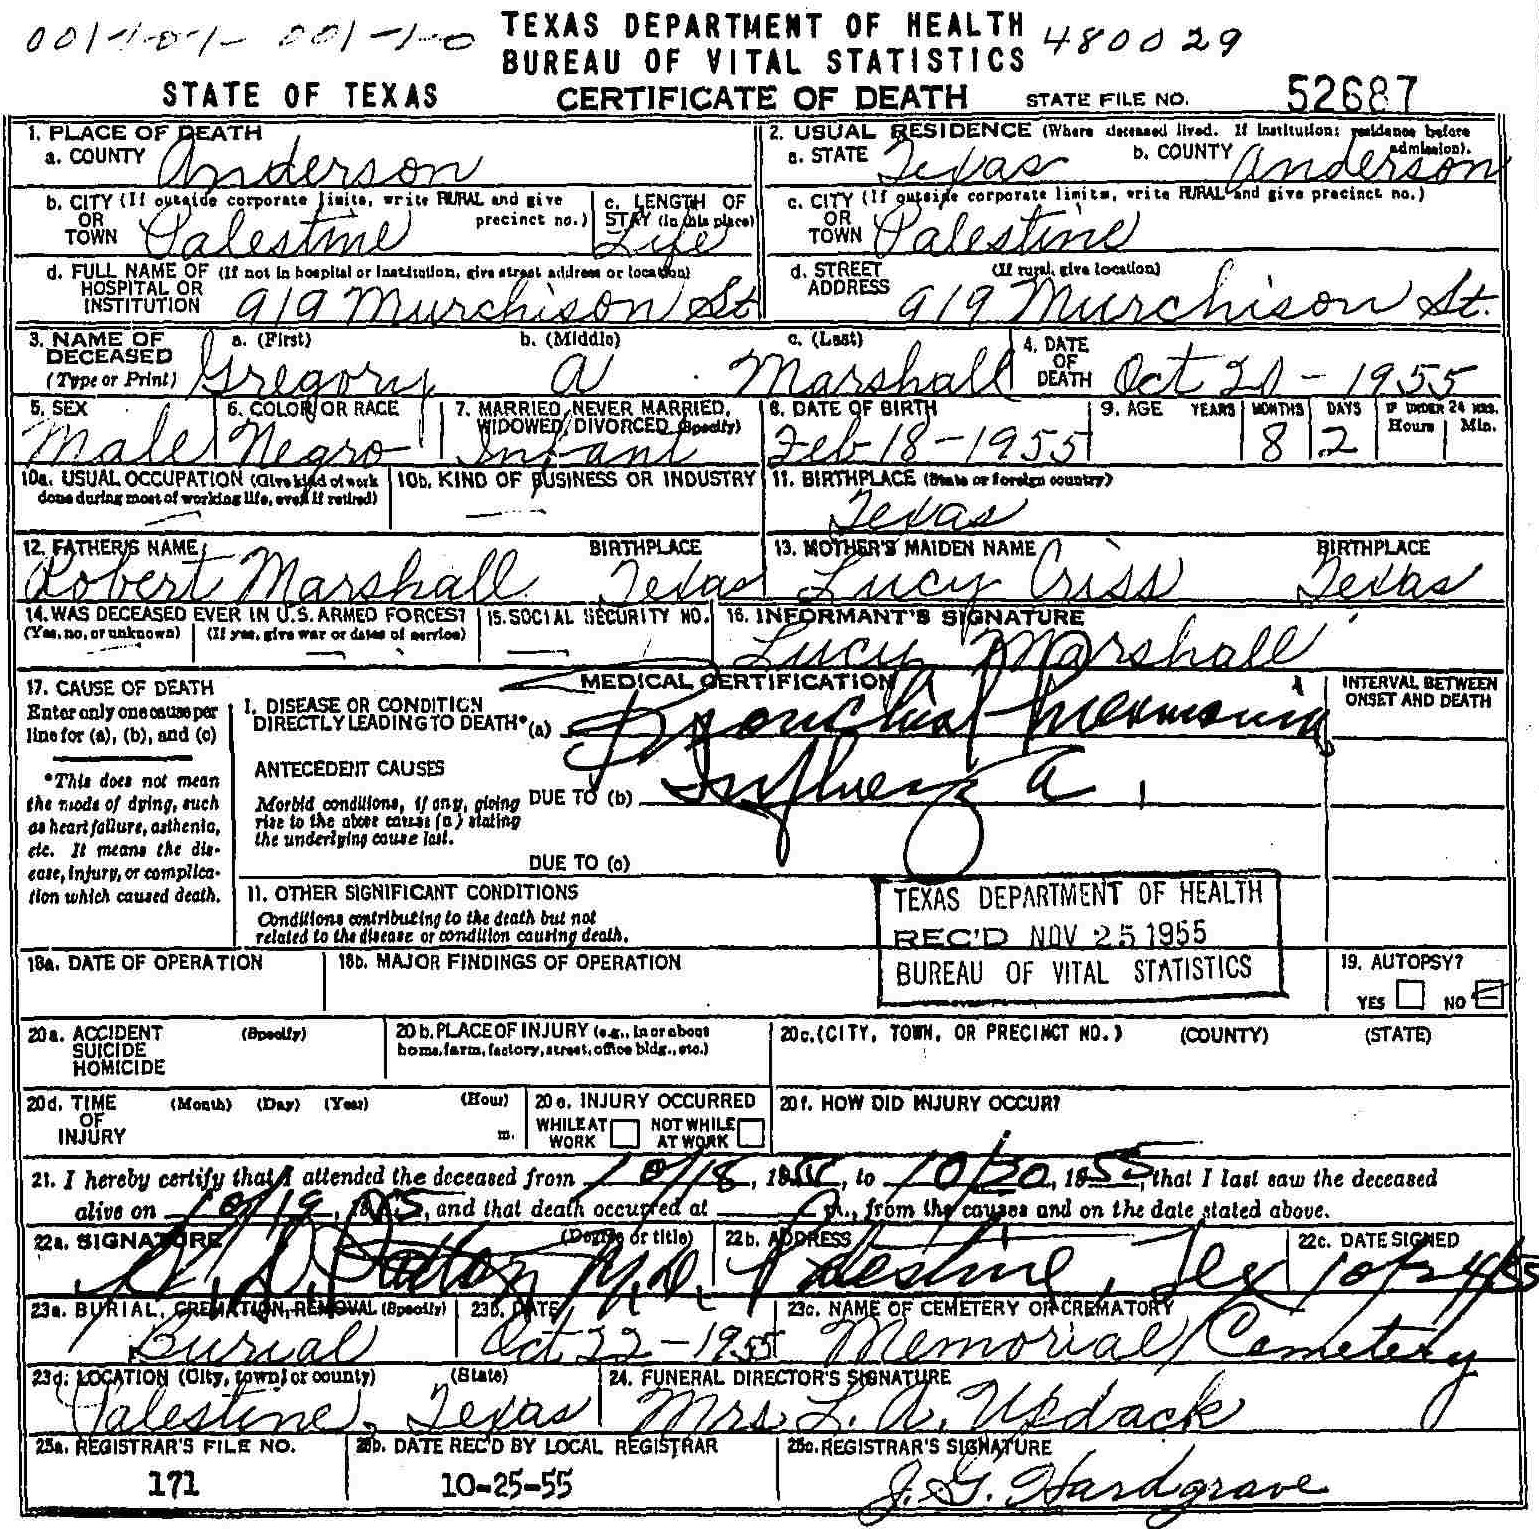 001-1-01- 001-1-0 TEXAS DEPARTMENT OF HEALTH 480029
BUREAU OF VITAL STATISTICS
STATE OF TEXAS CERTIFICATE OF DEATH STATE FILE NO. 52687
1. PLACE OF DEATH 2. USUAL RESIDENCE (Where deceased lived. If institution: residence before admission).
a. COUNTY Anderson a. STATE Texas b. COUNTY Anderson
b. CITY (If outside corporate limits, write RURAL and give precinct no.) OR TOWN Palestine c. LENGTH OF STAY (in this place) Life c. CITY (If outside corporate limits, write RURAL and give precinct no.) OR TOWN Palestine
d. FULL NAME OF HOSPITAL OR INSTITUTION (If not in hospital or institution, give street address or location) 919 Murchison St d. STREET ADDRESS (If rural, give location) 919 Murchison St.
3. NAME OF DECEASED (Type or Print) a. (First) Gregory b. (Middle) A c. (Last) Marshall 4. DATE OF DEATH Oct 20-1955
5. SEX Male 6. COLOR OR RACE Negro 7. MARRIED, NEVER MARRIED, WIDOWED, DIVORCED (Specify) Infant 8. DATE OF BIRTH Feb 18-1955 9. AGE YEARS MONTHS 8 DAYS 2 IF UNDER 24 HRS. Hours Min.
10a. USUAL OCCUPATION (Give kind of work done during most of working life, even if retired) — 10b. KIND OF BUSINESS OR INDUSTRY — 11. BIRTHPLACE (State or foreign country) Texas
12. FATHER'S NAME Robert Marshall BIRTHPLACE Texas 13. MOTHER'S MAIDEN NAME Lucy Criss BIRTHPLACE Texas
14. WAS DECEASED EVER IN U.S. ARMED FORCES? (Yes, no, or unknown) — (If yes, give war or dates of service) — 15. SOCIAL SECURITY NO. — 16. INFORMANT'S SIGNATURE Lucy Marshall
MEDICAL CERTIFICATION
17. CAUSE OF DEATH
Enter only one cause per
line for (a), (b), and (c)
*This does not mean
the mode of dying, such
as heart failure, asthenia,
etc. It means the dis-
ease, injury, or complica-
tion which caused death.
I. DISEASE OR CONDITION
DIRECTLY LEADING TO DEATH* (a) Bronchial Pneumonia
INTERVAL BETWEEN
ONSET AND DEATH
ANTECEDENT CAUSES
Morbid conditions, if any, giving
rise to the above cause (a) stating
the underlying cause last.
DUE TO (b) Influenza
DUE TO (c)
11. OTHER SIGNIFICANT CONDITIONS
Conditions contributing to the death but not
related to the disease or condition causing death.
TEXAS DEPARTMENT OF HEALTH
REC'D NOV 25 1955
BUREAU OF VITAL STATISTICS
18a. DATE OF OPERATION 18b. MAJOR FINDINGS OF OPERATION 19. AUTOPSY?
YES NO
20a. ACCIDENT (Specify) SUICIDE HOMICIDE 20b. PLACE OF INJURY (e.g., in or about home, farm, factory, street, office bldg., etc.) 20c. (CITY, TOWN, OR PRECINCT NO.) (COUNTY) (STATE)
20d. TIME OF INJURY (Month) (Day) (Year) (Hour) m. 20e. INJURY OCCURRED WHILE AT WORK NOT WHILE AT WORK 20f. HOW DID INJURY OCCUR?
21. I hereby certify that I attended the deceased from 10/18, 1955, to 10/20, 1955, that I last saw the deceased
alive on 10/19, 1955, and that death occurred at m., from the causes and on the date stated above.
22a. SIGNATURE (Degree or title) M.D. 22b. ADDRESS Palestine, Tex 22c. DATE SIGNED 10/24/55
23a. BURIAL, CREMATION, REMOVAL (Specify) Burial 23b. DATE Oct 22-1955 23c. NAME OF CEMETERY OR CREMATORY Memorial Cemetery
23d. LOCATION (City, town, or county) (State) Palestine, Texas 24. FUNERAL DIRECTOR'S SIGNATURE Mrs. L. A. Updack
25a. REGISTRAR'S FILE NO. 25b. DATE REC'D BY LOCAL REGISTRAR 25c. REGISTRAR'S SIGNATURE
171 10-25-55 J. G. Hardgrave